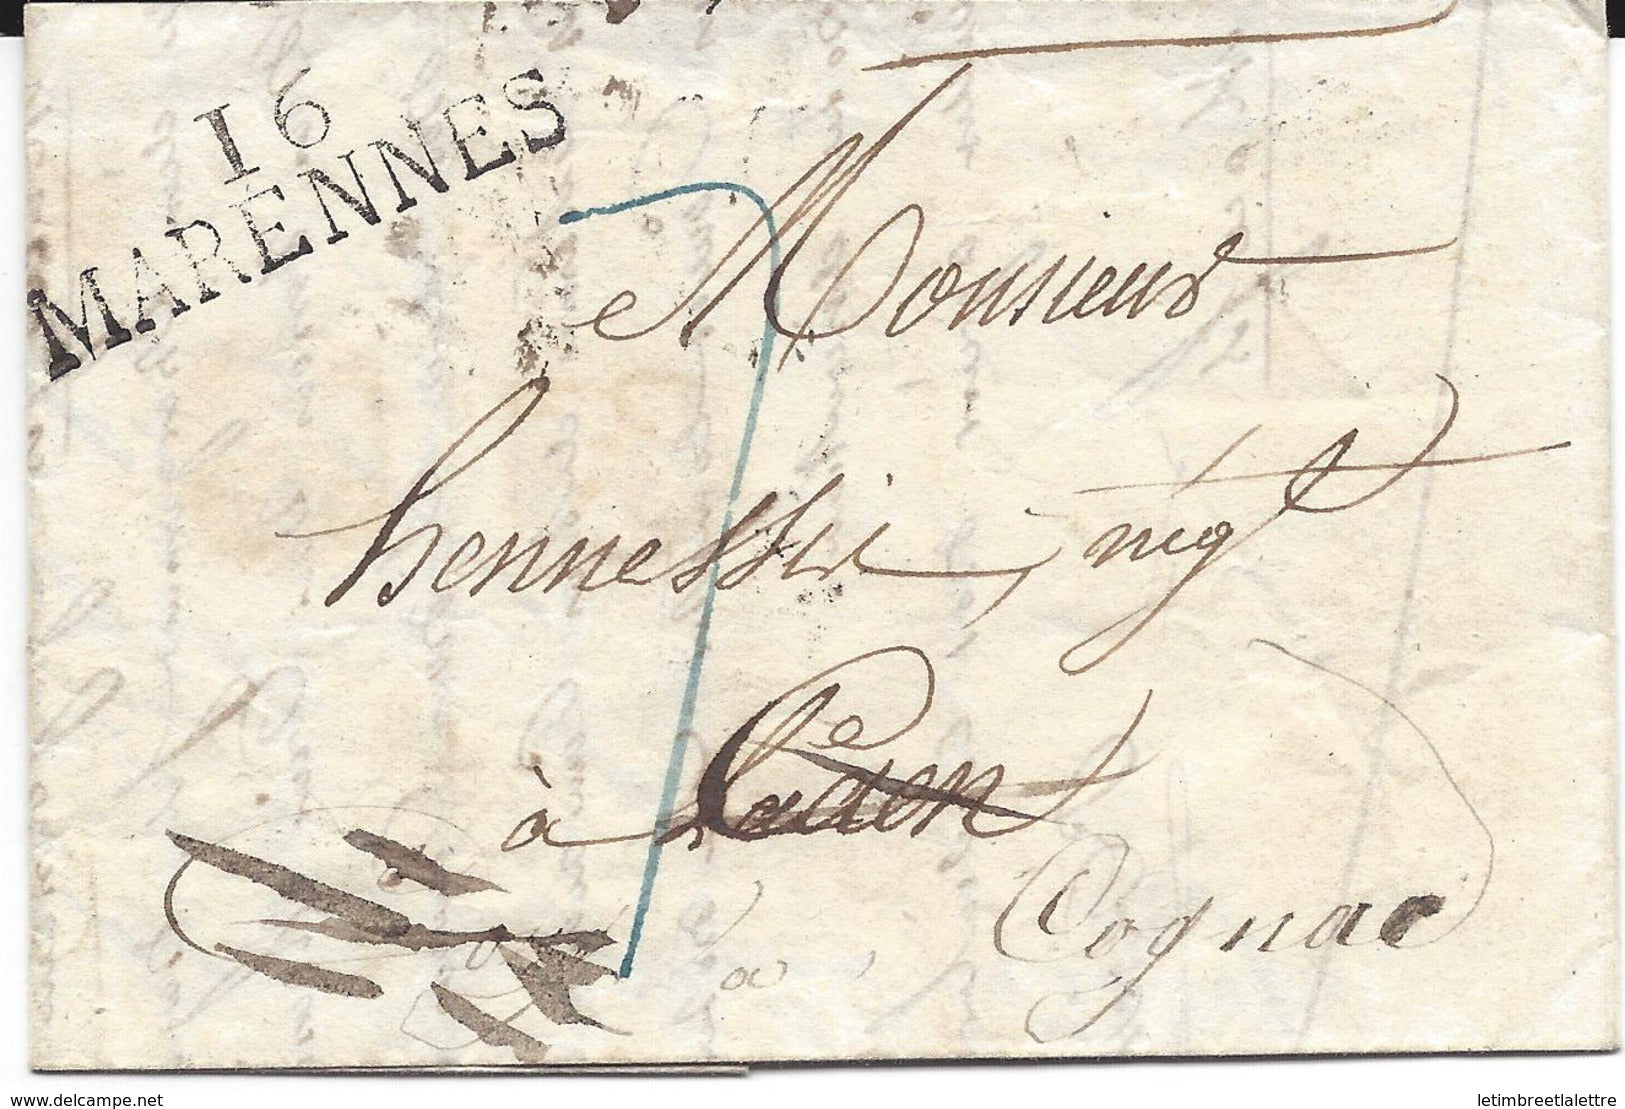 16
MARENNES
Monsieur
hennessii, negt
à
à Cognac
delcampe.net
letimbreetlalettre